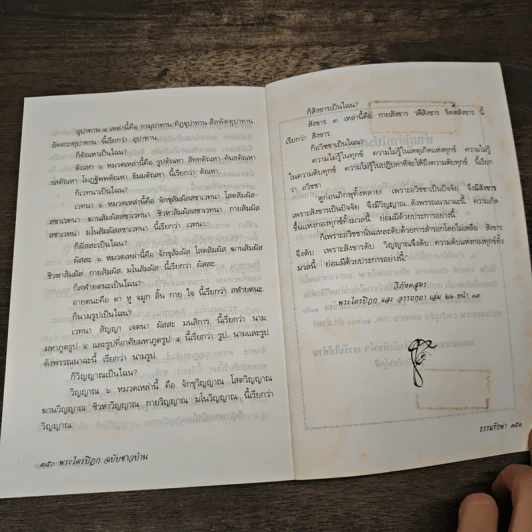 อุปาทาน ๔ เหล่านี้คือ กามุปาทาน ทิฏฐุปาทาน สีลัพพัตุปาทาน
อัตตวาทุปาทาน นี้เรียกว่า อุปาทาน.
ก็ตัณหาเป็นไฉน?
ตัณหา ๖ หมวดเหล่านี้คือ รูปตัณหา สัททตัณหา คันธตัณหา
รสตัณหา โผฏฐัพพตัณหา ธัมมตัณหา นี้เรียกว่า ตัณหา.
ก็เวทนาเป็นไฉน?
เวทนา ๖ หมวดเหล่านี้คือ จักขุสัมผัสสชาเวทนา โสตสัมผัส-
สชาเวทนา ฆานสัมผัสสชาเวทนา ชิวหาสัมผัสสชาเวทนา กายสัมผัส
สชาเวทนา มโนสัมผัสสชาเวทนา นี้เรียกว่า เวทนา.
ก็ผัสสะเป็นไฉน?
ผัสสะ ๖ หมวดเหล่านี้คือ จักขุสัมผัส โสตสัมผัส ฆานสัมผัส
ชิวหาสัมผัส กายสัมผัส มโนสัมผัส นี้เรียกว่า ผัสสะ.
ก็สฬายตนะเป็นไฉน?
อายตนะคือ ตา หู จมูก ลิ้น กาย ใจ นี้เรียกว่า สฬายตนะ.
ก็นามรูปเป็นไฉน?
เวทนา สัญญา เจตนา ผัสสะ มนสิการ นี้เรียกว่า นาม.
มหาภูตรูป ๔ และรูปที่อาศัยมหาภูตรูป ๔ นี้เรียกว่า รูป. นามและรูป
ดังพรรณนาฉะนี้ เรียกว่า นามรูป.
ก็วิญญาณเป็นไฉน?
วิญญาณ ๖ หมวดเหล่านี้ คือ จักขุวิญญาณ โสตวิญญาณ
ฆานวิญญาณ ชิวหาวิญญาณ กายวิญญาณ มโนวิญญาณ นี้เรียกว่า
วิญญาณ
๓๕๐ พระไตรปิฎก ฉบับชาวบ้าน
ก็สังขารเป็นไฉน?
สังขาร ๓ เหล่านี้คือ กายสังขาร วจีสังขาร จิตตสังขาร นี้
เรียกว่า สังขาร.
ก็อวิชชาเป็นไฉน?
ความไม่รู้ในทุกข์ ความไม่รู้ในเหตุเกิดแห่งทุกข์ ความไม่รู้
ในความดับทุกข์ ความไม่รู้ในปฏิปทาที่จะให้ถึงความดับทุกข์ นี้เรียก
ว่า อวิชชา.
"ดูก่อนภิกษุทั้งหลาย เพราะอวิชชาเป็นปัจจัย จึงมีสังขาร
เพราะสังขารเป็นปัจจัย จึงมีวิญญาณ...ดังพรรณนามาฉะนี้ ความเกิด
ขึ้นแห่งกองทุกข์ทั้งมวลนี้ ย่อมมีด้วยประการอย่างนี้.
ก็เพราะอวิชชานั่นแหละดับด้วยการสำรอกโดยไม่เหลือ สังขาร
จึงดับ เพราะสังขารดับ วิญญาณจึงดับ...ความดับแห่งกองทุกข์ทั้ง
มวลนี้ ย่อมมีด้วยประการอย่างนี้."
วิภังคสูตร
พระไตรปิฎก และ อรรถกถา เล่ม ๒๖ หน้า ๑๙
ธรรมรักษา ๓๕๑